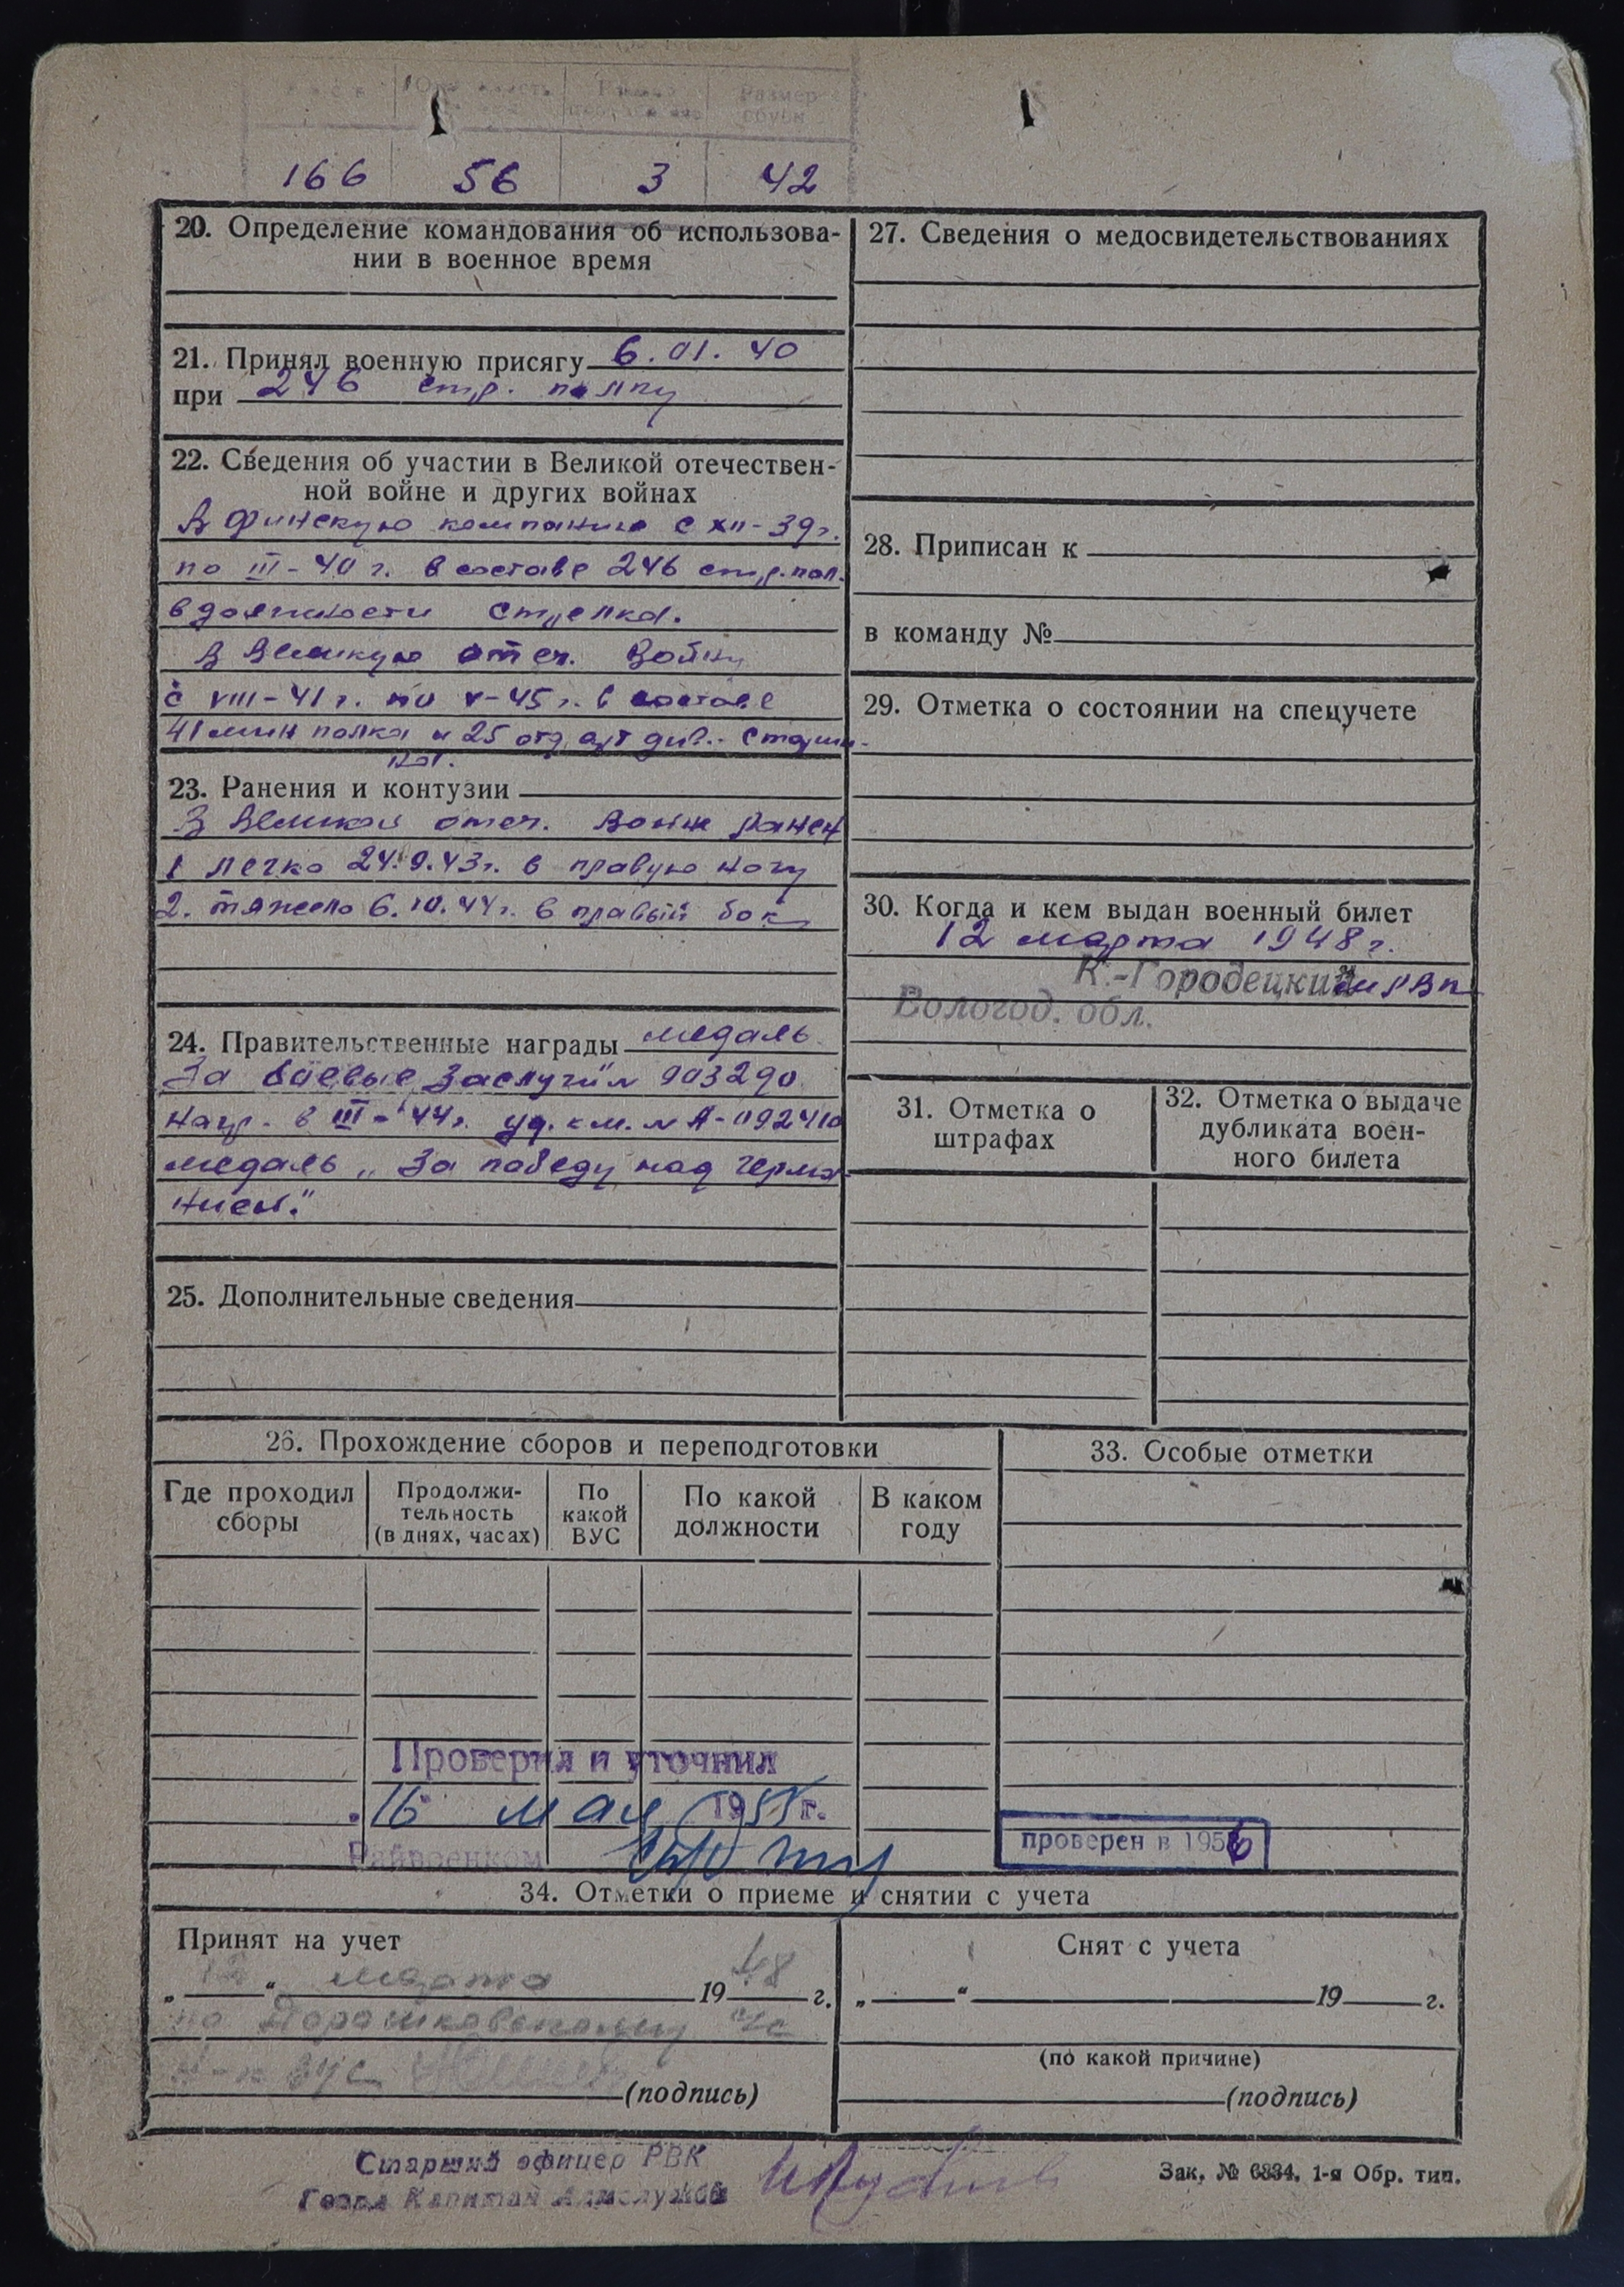 Размер
обуви
166 56 3 42
20. Определение командования об использова-
нии в военное время
21. Принял военную присягу 6.01.40
при 246 стр. полку
22. Сведения об участии в Великой отечествен-
ной войне и других войнах
В финскую компанию с XII-39г.
по III-40 г. в составе 246 стр. пол.
в должности стрелка.
В Великую отеч. войну
с VIII-41 г. по V-45 г. в составе
41 мин полка и 25 отд. арт див. - старши-
на.
23. Ранения и контузии
В Великой отеч. войне ранен
1 легко 24.9.43г. в правую ногу
2. тяжело 6.10.44г. в правый бок
24. Правительственные награды медаль
За боевые заслуги" № 903290
нагр. в III-44г. уд. к м. № А-092410
медаль „За победу над Герма-
нией."
25. Дополнительные сведения
26. Прохождение сборов и переподготовки
Где проходил
сборы
Продолжи-
тельность
(в днях, часах)
По
какой
ВУС
По какой
должности
В каком
году
Проверил и уточнил
16 мая 1955 г.
Райвоенком
27. Сведения о медосвидетельствованиях
28. Приписан к
в команду №
29. Отметка о состоянии на спецучете
30. Когда и кем выдан военный билет
12 марта 1948 г.
К.-Городецким РВК
Вологод. обл.
31. Отметка о
штрафах
32. Отметка о выдаче
дубликата воен-
ного билета
33. Особые отметки
проверен в 1956
34. Отметки о приеме и снятии с учета
Принят на учет
„12“ марта 1948 г.
по Дорошковскому с/с
(подпись)
Снят с учета
„ “ 19 г.
(по какой причине)
(подпись)
Старший офицер РВК
Капитан Админслужбы
Зак. № 6834. 1-я Обр. тип.